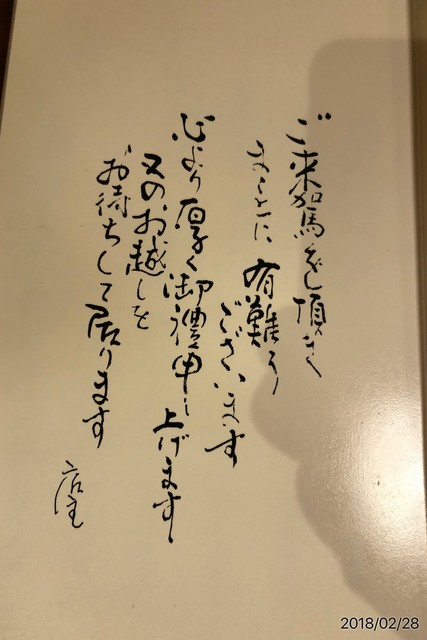 ご来駕を頂き
まことに有難う
ございます
心より厚く御禮申し上げます
又のお越しを
お待ちして居ります
店主
2018/02/28